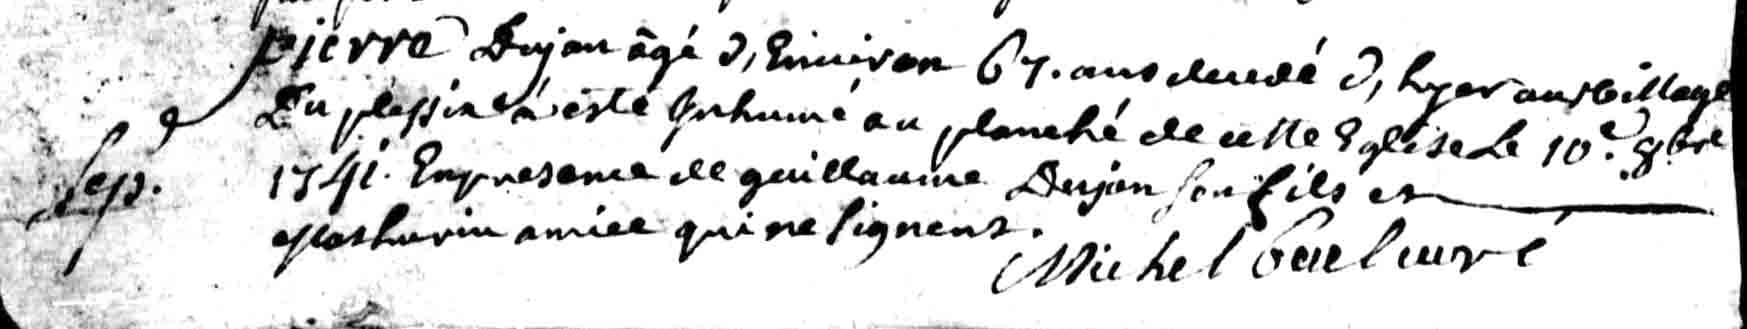 pierre Dujan âgé d, Environ 67. ans decedé d, hyer au village
Sep. Du plessix a esté Inhumé au planché de cette Eglise Le 10e. 8bre
1741. En presence de guillaume Dujan son fils et
Mathurin amice qui ne signent.
Michel curé